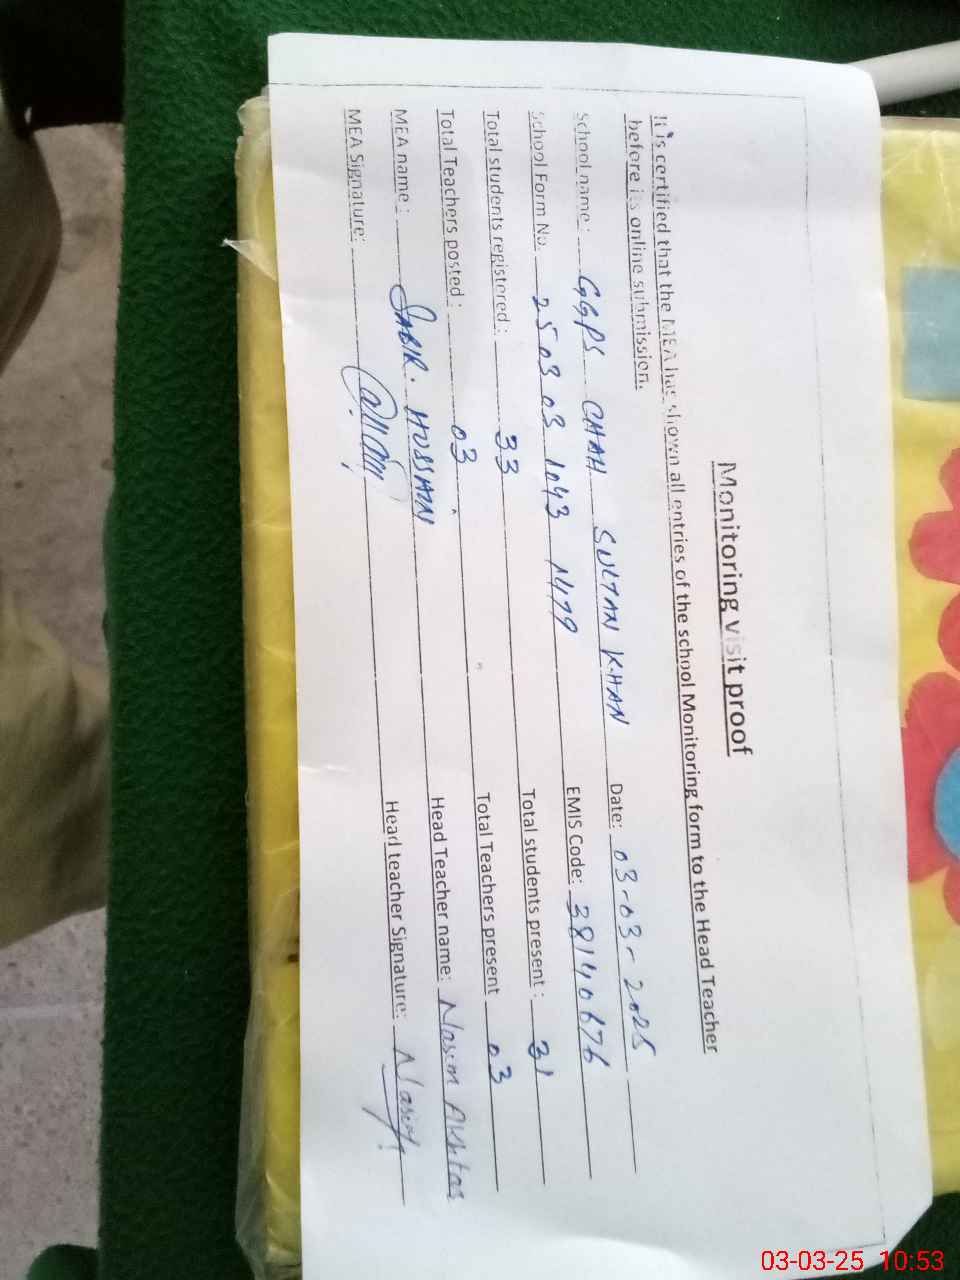 Monitoring visit proof
It is certified that the MEA has shown all entries of the school Monitoring form to the Head Teacher
before its online submission.
School name: GGPS CHAH SULTAN KHAN Date: 03-03-2025
School Form No. 25 03 03 1043 1479 EMIS Code: 38140676
Total students registered: 33 Total students present: 31
Total Teachers posted: 03 Total Teachers present 03
MEA name: SABIR. HUSSAIN Head Teacher name: Nasim Akhtar
MEA Signature: Head teacher Signature:
03-03-25 10:53